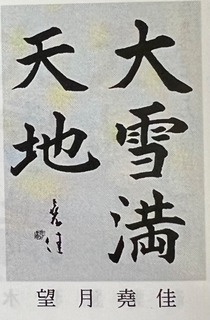 大雪満
天地
尭佳
望月堯佳